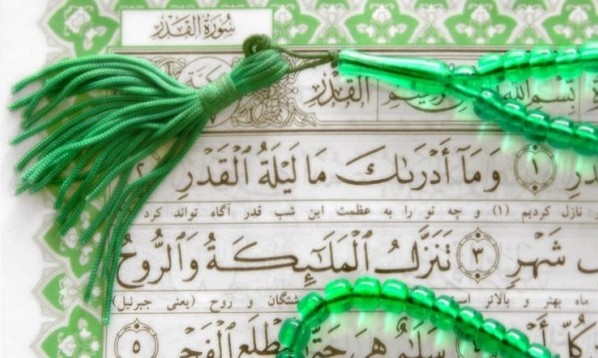 سُورَةُ الْقَدْرِ
بِسْمِ اللَّهِ الْقَدْرِ
دْرِ ١ وَمَآ أَدْرَىٰكَ مَا لَيْلَةُ ٱلْقَدْرِ ٢
نازل کردیم (١) و چه تو را به عظمت این شب قدر آگاه تواند کرد
شَهْرٍ ٣ تَنَزَّلُ ٱلْمَلَٰٓئِكَةُ وَٱلرُّوحُ
ماه بهتر و بالاتر شتگان و روح (یعنی جبرئیل)
كُلِّ سَلَٰمٌ هِىَ حَتَّىٰ مَطْلَعِ ٱلْفَجْ ٥